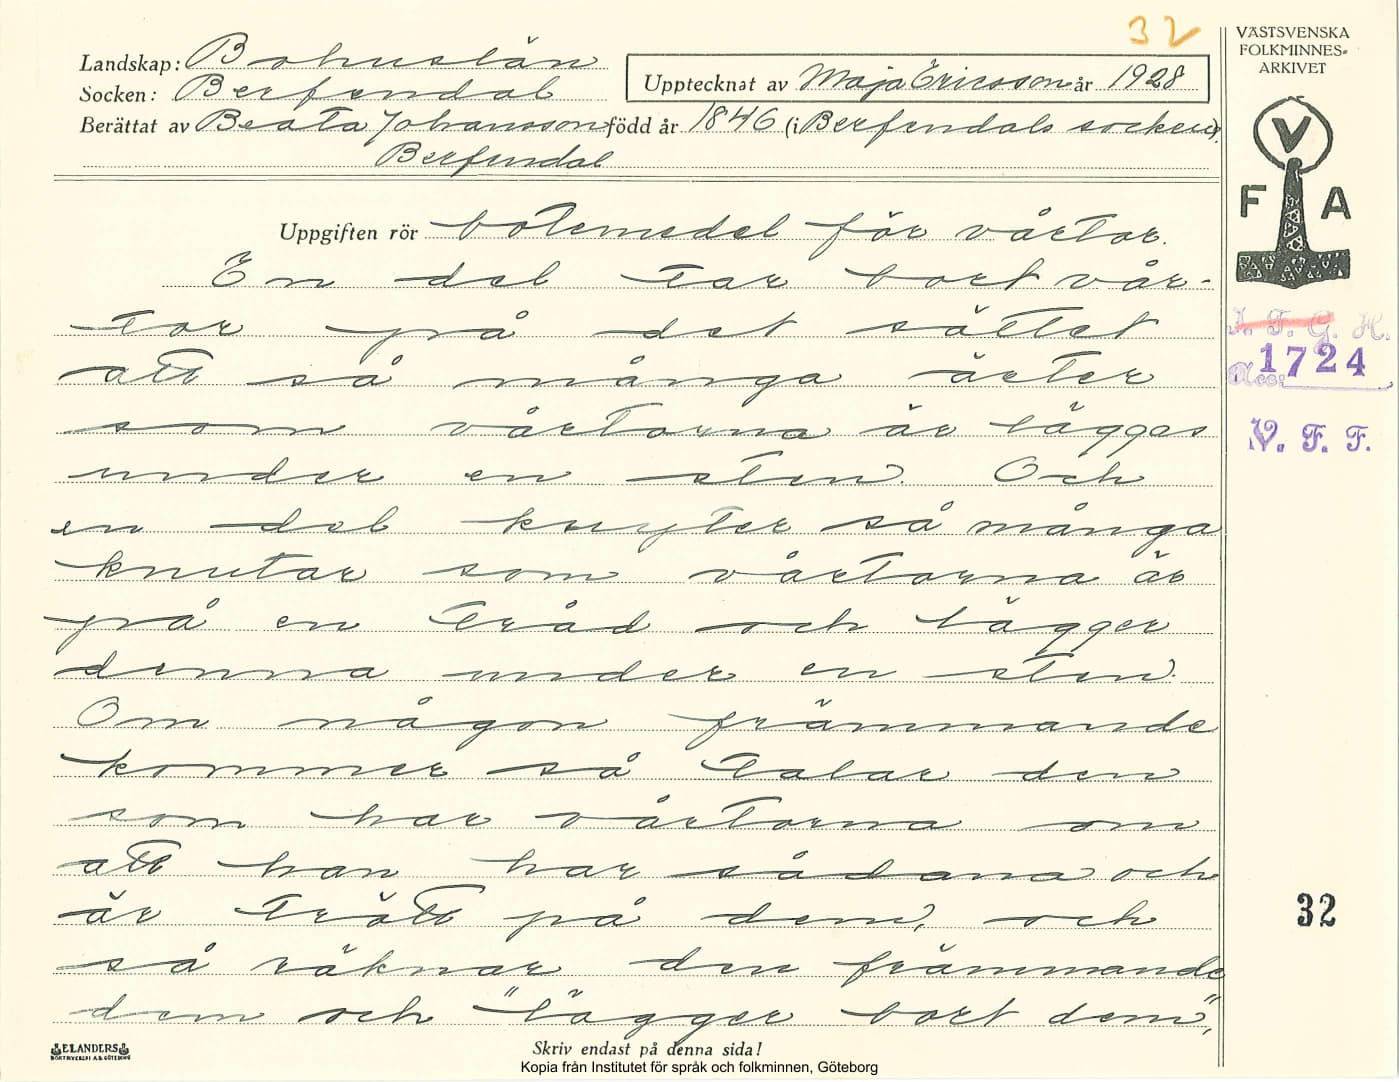 32
VÄSTSVENSKA
FOLKMINNES-
ARKIVET
Landskap: Bohuslän
Socken: Berfendal
Upptecknat av Maja Ericsson år 1928
Berättat av Beata Johansson född år 1846 (i Berfendals socken).
Berfendal
V
F A
Uppgiften rör botemedel för vårtor.
En del tar bort vår-
tor på det sättet
att så många ärter
som vårtorna är lägges
under en sten. Och
en del knyter så många
knutar som vårtorna är
på en tråd och lägger
denna under en sten.
Om någon främmande
kommer så talar den
som har vårtorna om
att han har sådana och
är trött på dem, och
så räknar den främmande
dem och "lägger bort dem",
I. F. G. H.
Acc. 1724
V. F. F.
32
ELANDERS
BOKTRYCKERI A.B. GÖTEBORG
Skriv endast på denna sida!
Kopia från Institutet för språk och folkminnen, Göteborg